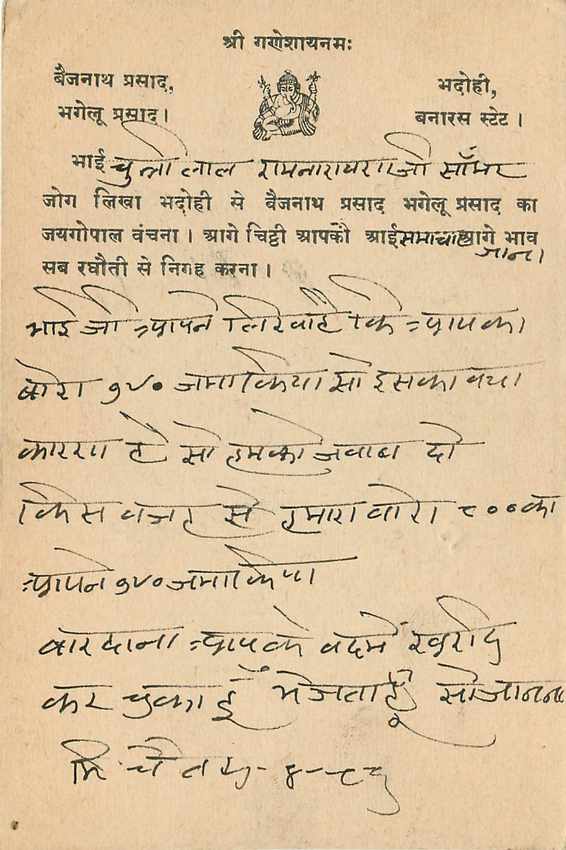 श्री गणेशायनमः
बैजनाथ प्रसाद,
भगेलू प्रसाद।
भदोही,
बनारस स्टेट।
भाई चुन्नी लाल रामनारायण जी साँभर
जोग लिखा भदोही से बैजनाथ प्रसाद भगेलू प्रसाद का
जयगोपाल वंचना। आगे चिट्ठी आपकौ आई समाचार जाना। आगे भाव
सब रघौती से निगह करना।
भाई जी आपने लिखा है कि आपका
बोरा ७४० जमा किया सो इसका क्या
कारण है सो हमको जवाब दो
किस वजह से हमारा बोरा ८०० का
आपने ७४० जमा किया
बारदाना आपके बदमें खरीद
कर चुका हूँ भेजता हूँ सो जानना
मि चैत